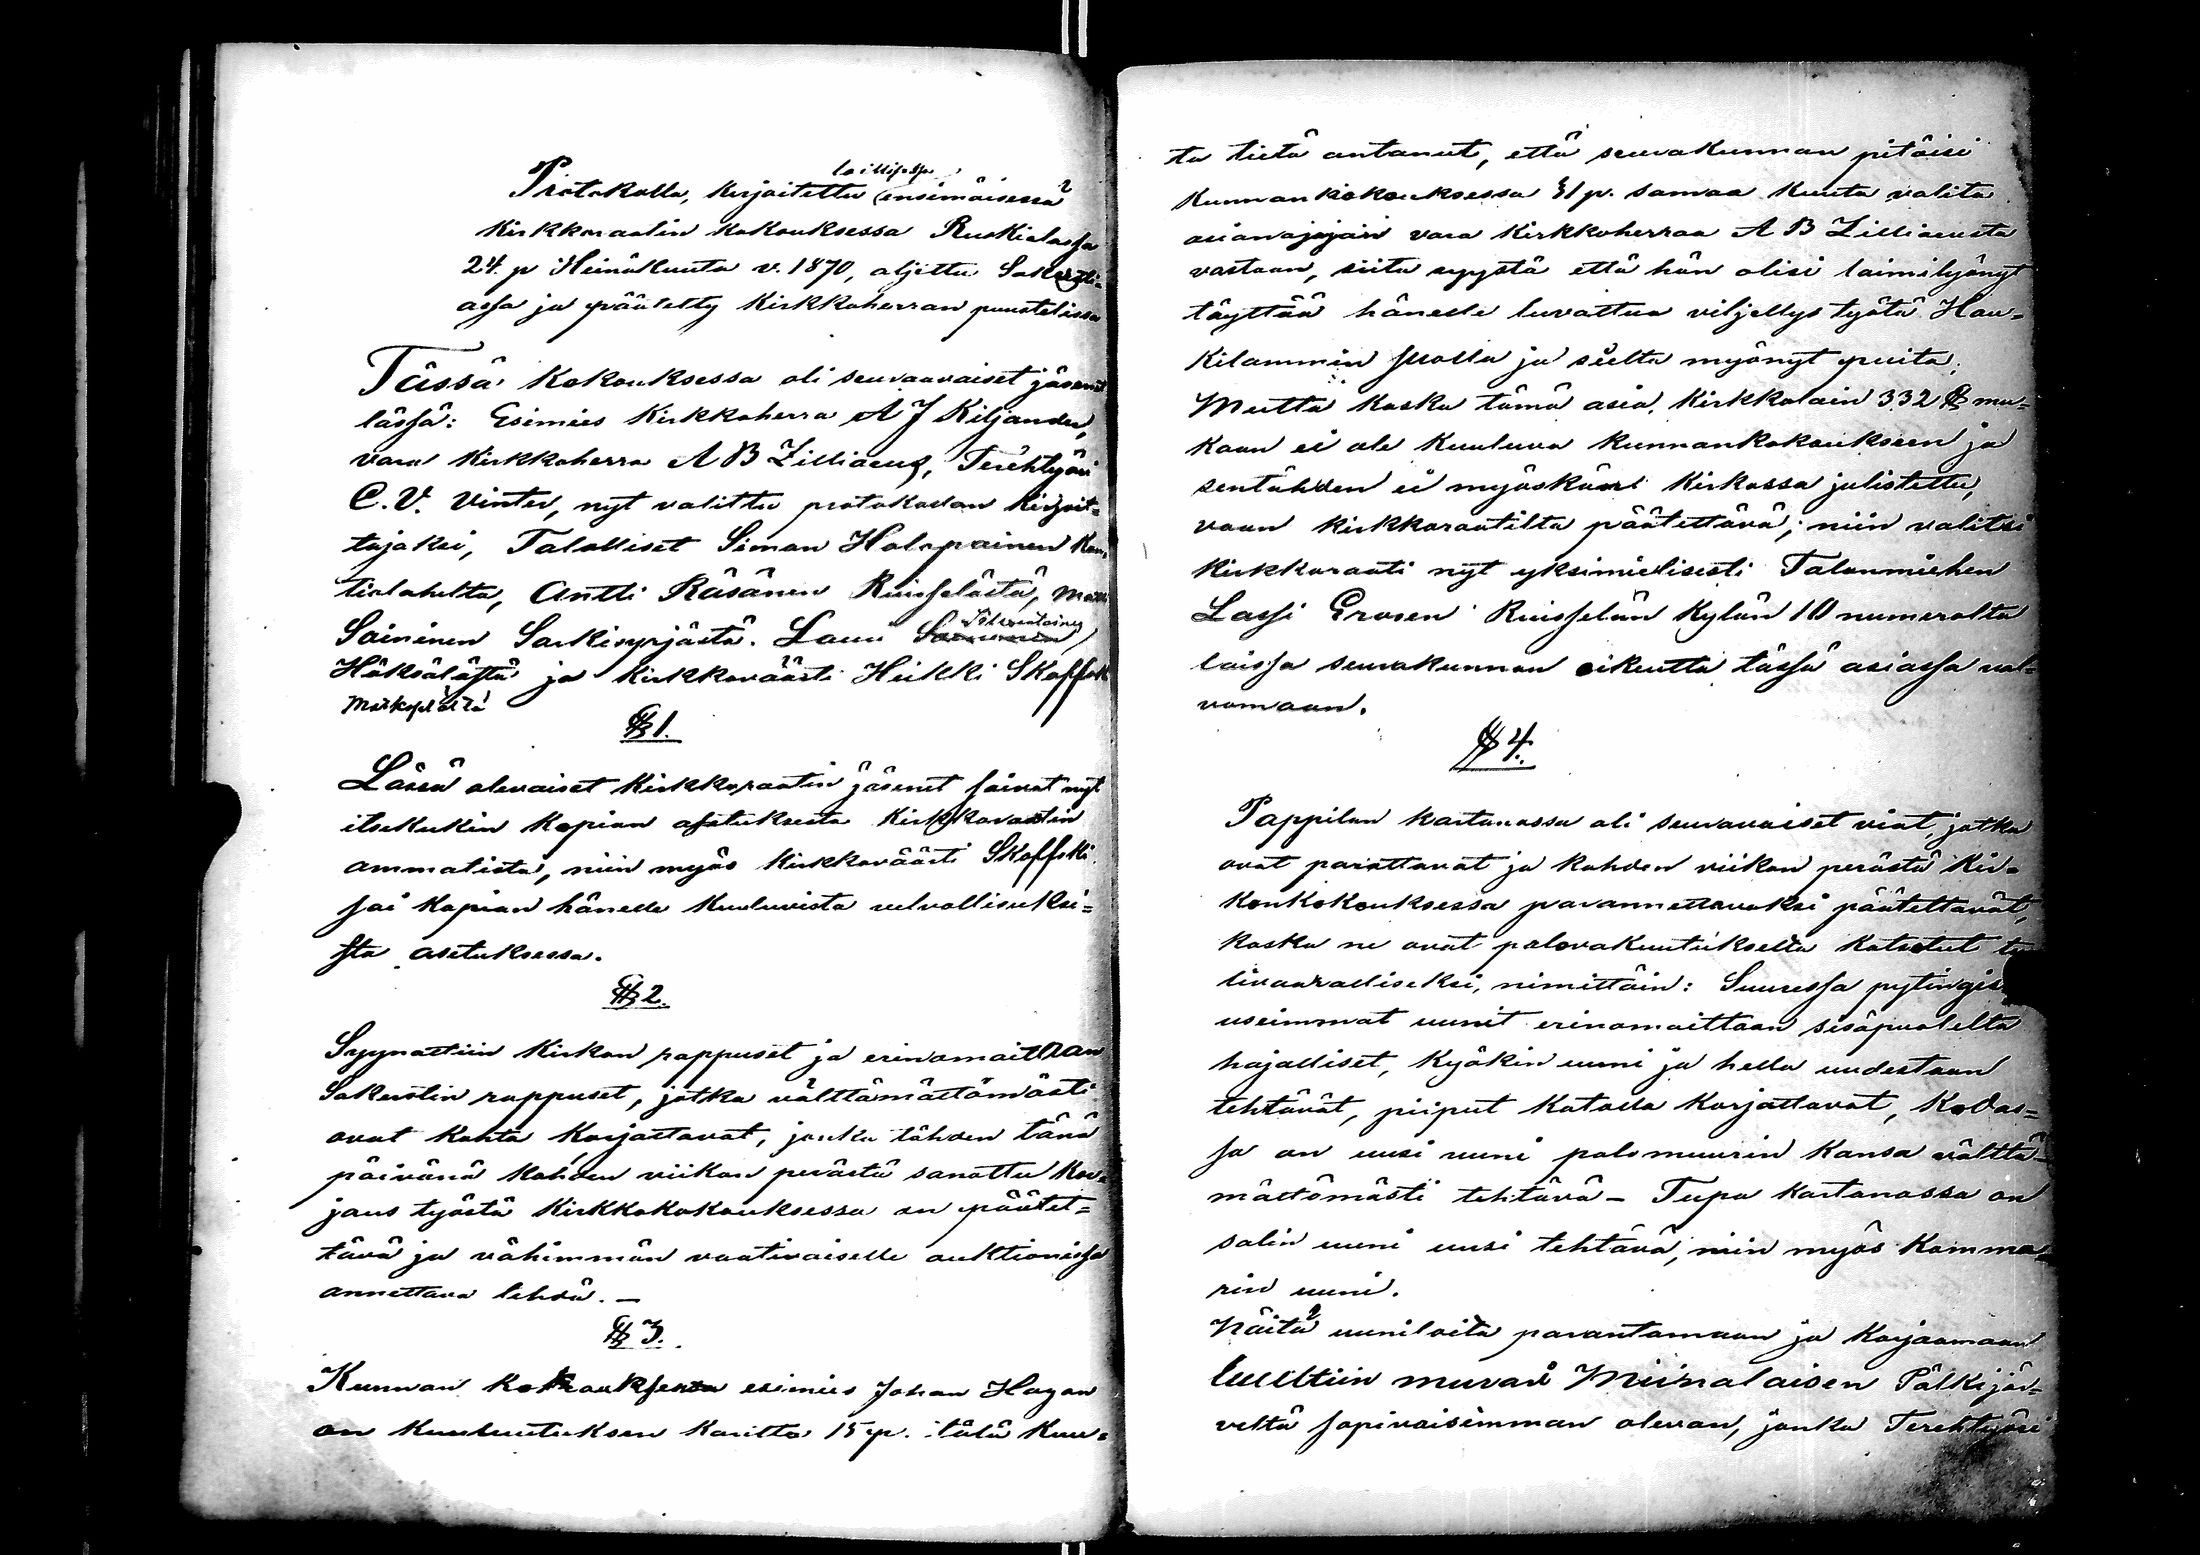 laillisessa
Protokolla, kirjoitettu ensimäisessä
Kirkkoraatin kokouksessa Ruskialassa
24. p Heinäkuuta v. 1870, aljettu Sakasti-
assa ja päätetty Kirkkoherran puustelissa
Tässä kokouksessa oli seuraavaiset jäsenet
lässä: Esimies Kirkkoherra A J Kiljander,
vara Kirkkoherra A B Zilliacus, Terehtyöri
C. V. Vinter, nyt valittu protokollan kirjoit-
tajaksi, Talolliset Simon Holopainen Kon-
tiolahelta, Antti Räsänen Ruisselästä, Matti
Saininen Särkisyrjästä. Lauri
Häksälästä ja Kirkkoväästi Heikki Skoffski
§ 1.
Läsnä olevaiset Kirkkoraatin jäsenet saivat nyt
itsekukin kopian asetuksesta Kirkkoraatin
ammatista, niin myös Kirkkoväästi Skoffski
sai kopian hänelle kuuluvista velvollisuksi-
sta asetuksessa.
§ 2.
Syynättiin Kirkon rappuset ja erinomaittan
Sakerstin rappuset, jotka välttämättömästi
ovat kohta korjattavat, jonka tähden tänä
päivänä kahden viikon perästä sanottu kor-
jaus työstä Kirkkokokouksessa on päätet-
tävä ja vähimmän vaativaiselle auktionissa
annettava tehdä. —
§ 3.
Kunnan kokouksen esimies Johan Hagan
on kuuluutuksen kautta 15 p. tätä kuu-
ta tietä antanut, että seurakunnan pitäisi
Kunnankokouksessa 31 p. samaa kuuta valita
asianajajan vara Kirkkoherraa A B Zilliacusta
vastaan, siitä syystä että hän olisi laimilyönyt
täyttää hänelle luvattua viljellys työtä Hau-
kilammin suolla ja sieltä myönyt puita.
Mutta koska tämä asia, Kirkkolain 332 § mu-
kaan ei ole kuuluva kunnankokoukseen ja
sentähden ei myöskään Kirkossa julistettu,
vaan kirkkoraatilta päätettävä; niin valitsi
Kirkkoraati nyt yksimielisesti Talonmiehen
Lassi Erosen Ruisselän kylän 10 numerolta
laissa seurakunnan oikeutta tässä asiassa val-
vomaan.
§ 4.
Pappilan kartanossa oli seuraavaiset viat, jotka
ovat parattavat ja kahden viikon perästä Kir-
konkokouksessa parannettavaksi päätettävät,
koska ne ovat palovakuutukselta katsotut tu-
livaaralliseksi, nimittäin: Suuressa pytingis
useimmat uunit erinomaittaan sisäpuolelta
hajalliset, kyökin uuni ja hella uudestaan
tehtävät, piiput katolla korjattavat, Kodas-
sa on uusi uuni palomuurin kansa välttä-
mättömästi tehtävä — Tupa kartanossa on
salin uuni uusi tehtävä, niin myös kamma-
rin uuni.
Näitä uuniloita parantamaan ja korjaamaan
luultiin murari Miinalaisen Pälkijär-
veltä sopivaisimman olevan, jonka Terehtyöri